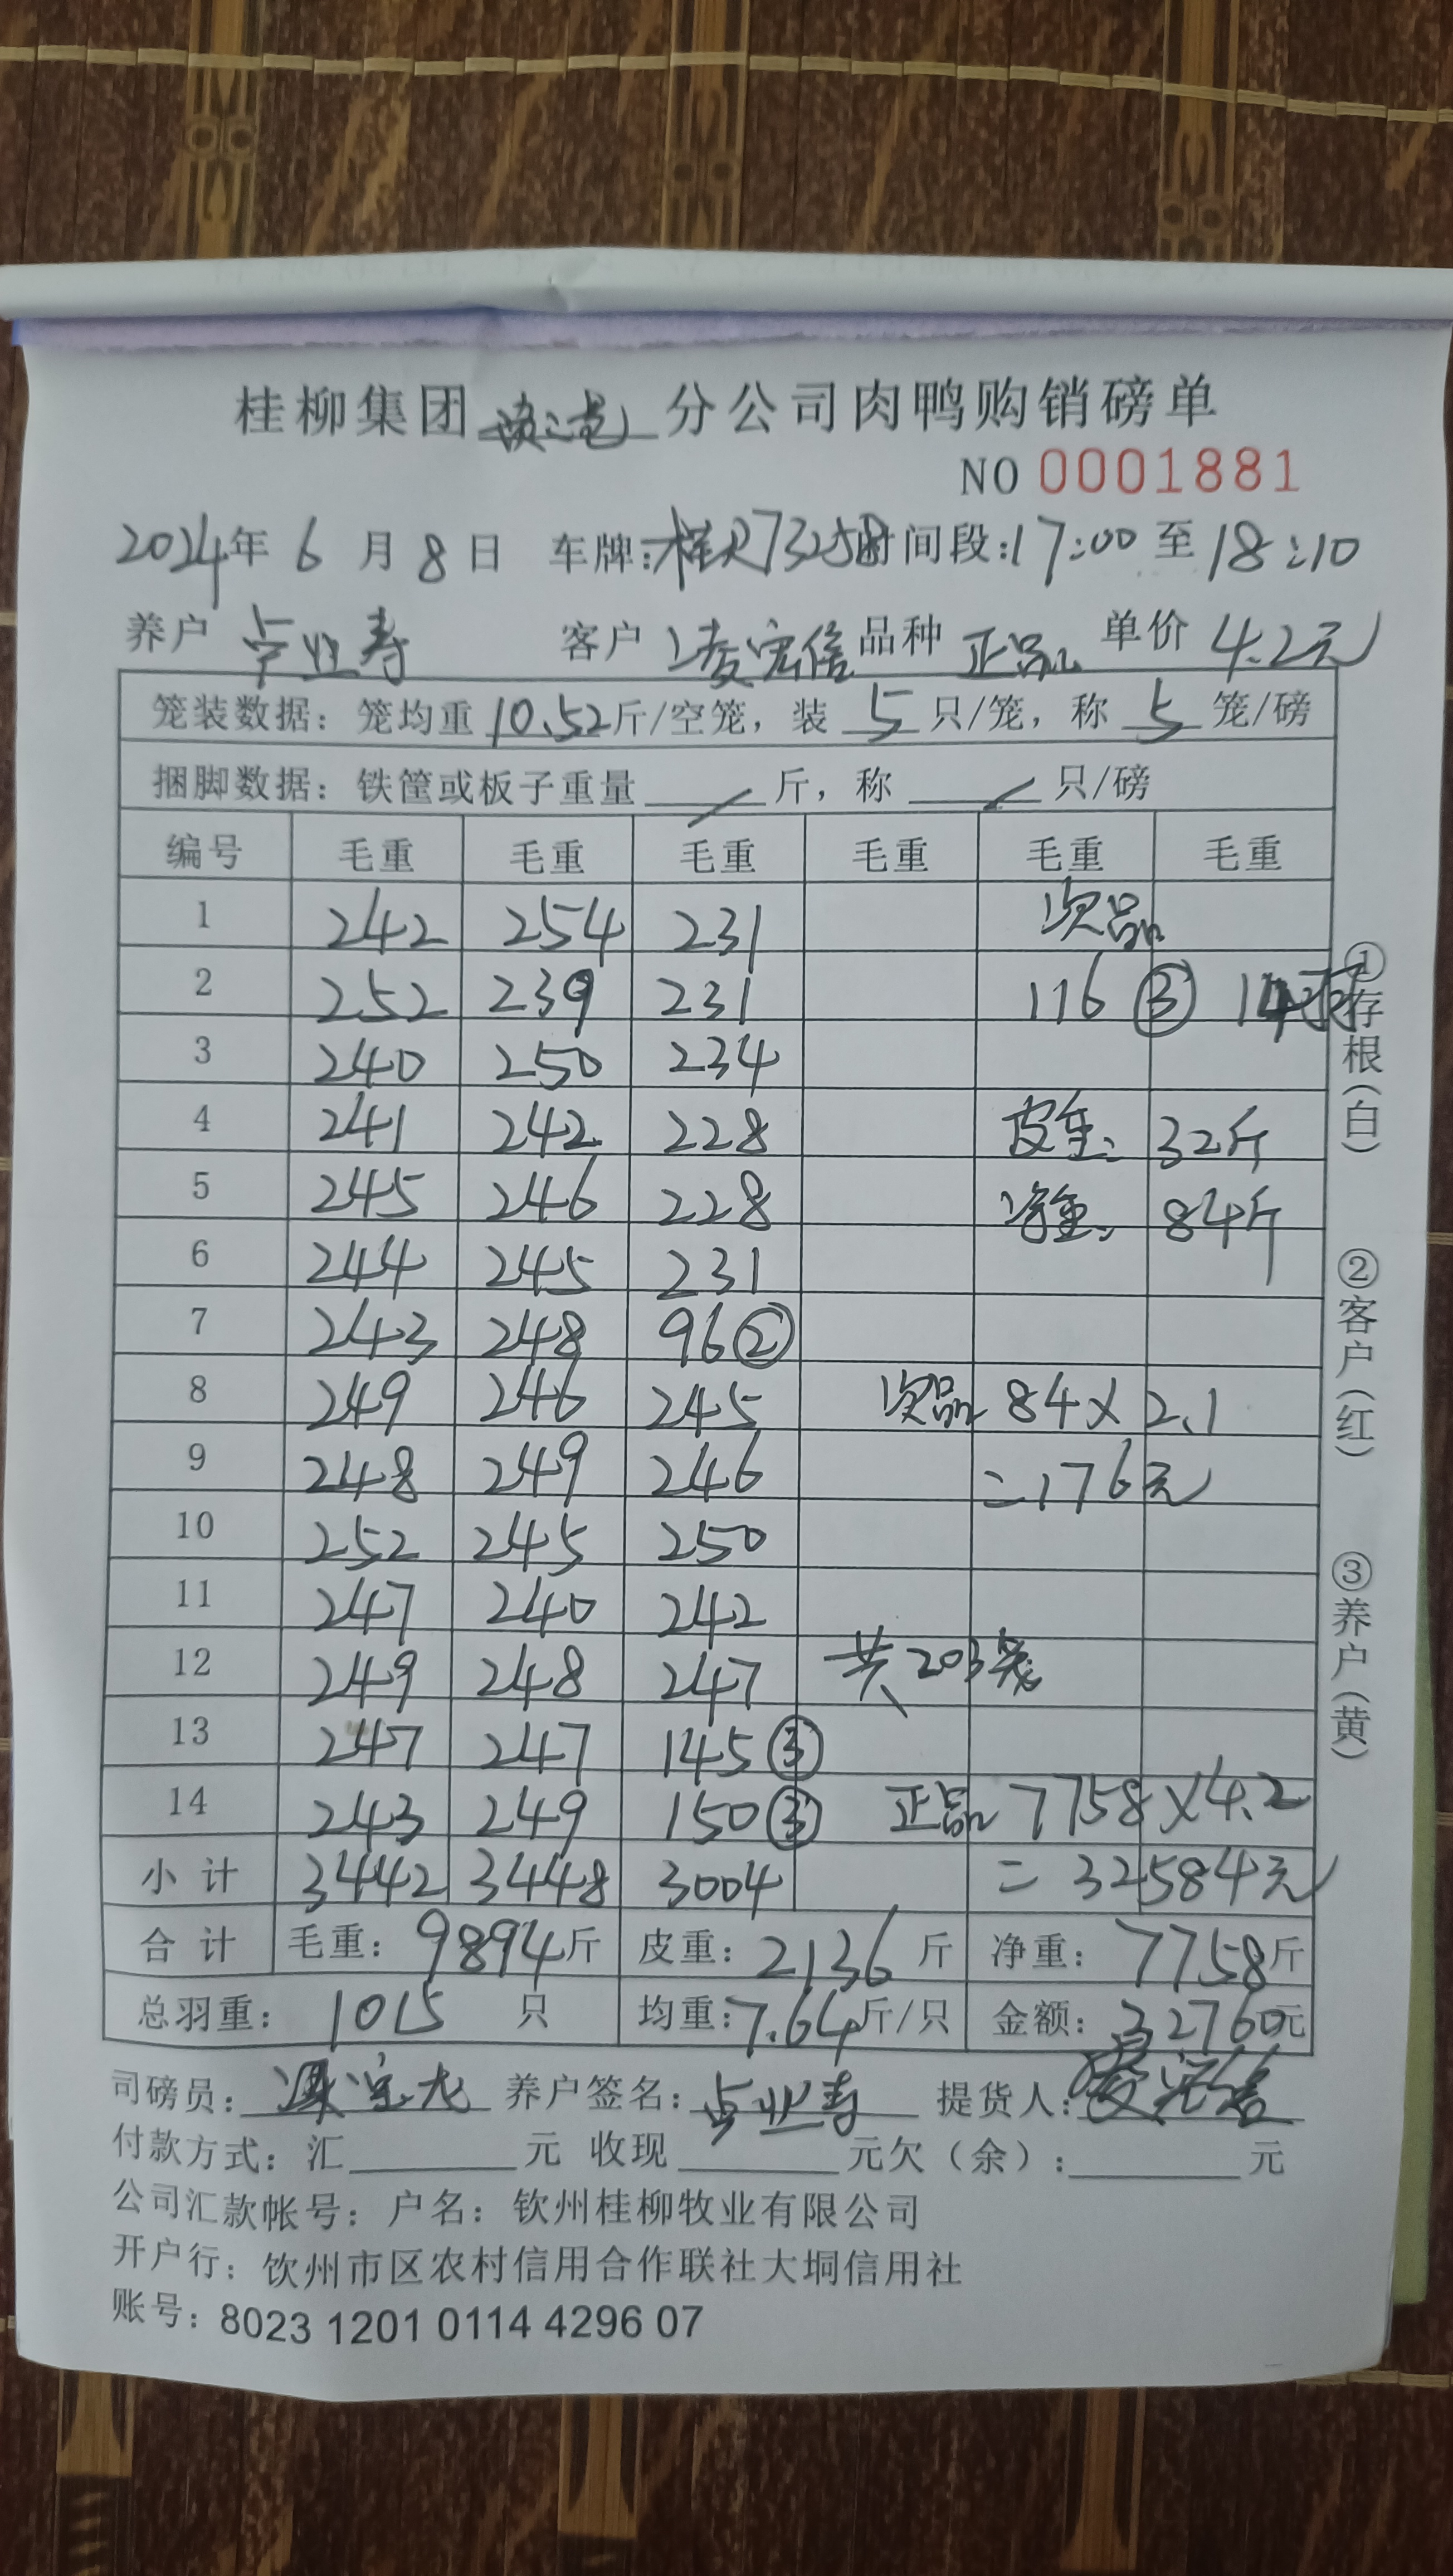 桂柳集团 分公司肉鸭购销磅单
NO 0001881
2024年 6 月 8 日 车牌: 时间段:17:00 至 18:10
养户 卢业寿 客户 凌宏信 品种 正品 单价 4.2元
笼装数据: 笼均重 10.52 斤/空笼, 装 5 只/笼, 称 5 笼/磅
捆脚数据: 铁筐或板子重量 / 斤, 称 / 只/磅
编号 毛重 毛重 毛重 毛重 毛重 毛重
1 242 254 231 次品
2 252 239 231 116 ③ 14
3 240 250 234
4 241 242 228 皮重: 32斤
5 245 246 228 净重: 84斤
6 244 245 231
7 243 248 96②
8 249 246 245 次品 84×2.1
9 248 249 246 =176元
10 252 245 250
11 247 240 242
12 249 248 247 共203笼
13 247 247 145③
14 243 249 150③ 正品 7758×4.2
小计 3442 3448 3004 = 32584元
合计 毛重: 9894斤 皮重: 2136 斤 净重: 7758斤
总羽重: 1015 只 均重: 7.64斤/只 金额: 32760元
司磅员: 养户签名: 卢业寿 提货人: 凌宏信
付款方式: 汇 元 收现 元欠(余): 元
公司汇款帐号: 户名: 钦州桂柳牧业有限公司
开户行: 钦州市区农村信用合作联社大垌信用社
账号: 8023 1201 0114 4296 07
①存根(白) ②客户(红) ③养户(黄)